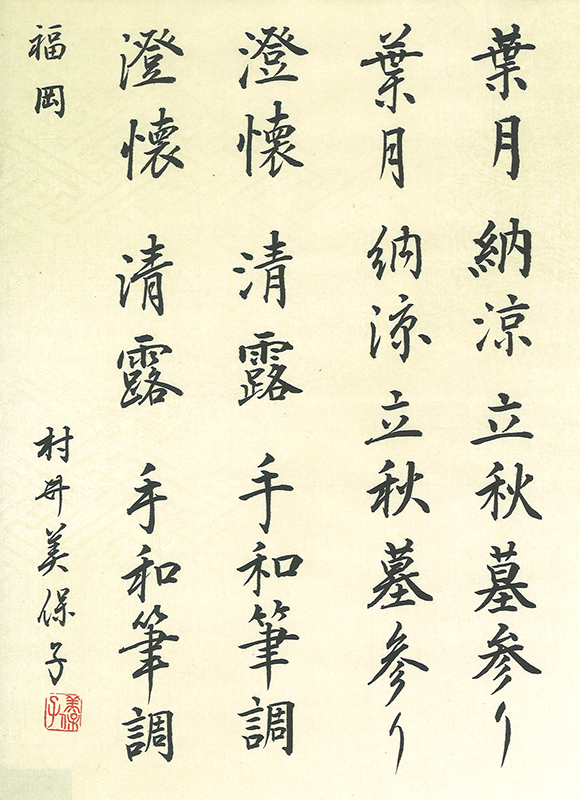 葉月 納涼 立秋 墓参り
葉月 納涼 立秋 墓参り
澄懐 清露 手和筆調
澄懐 清露 手和筆調
福岡 村井美保子
美保子